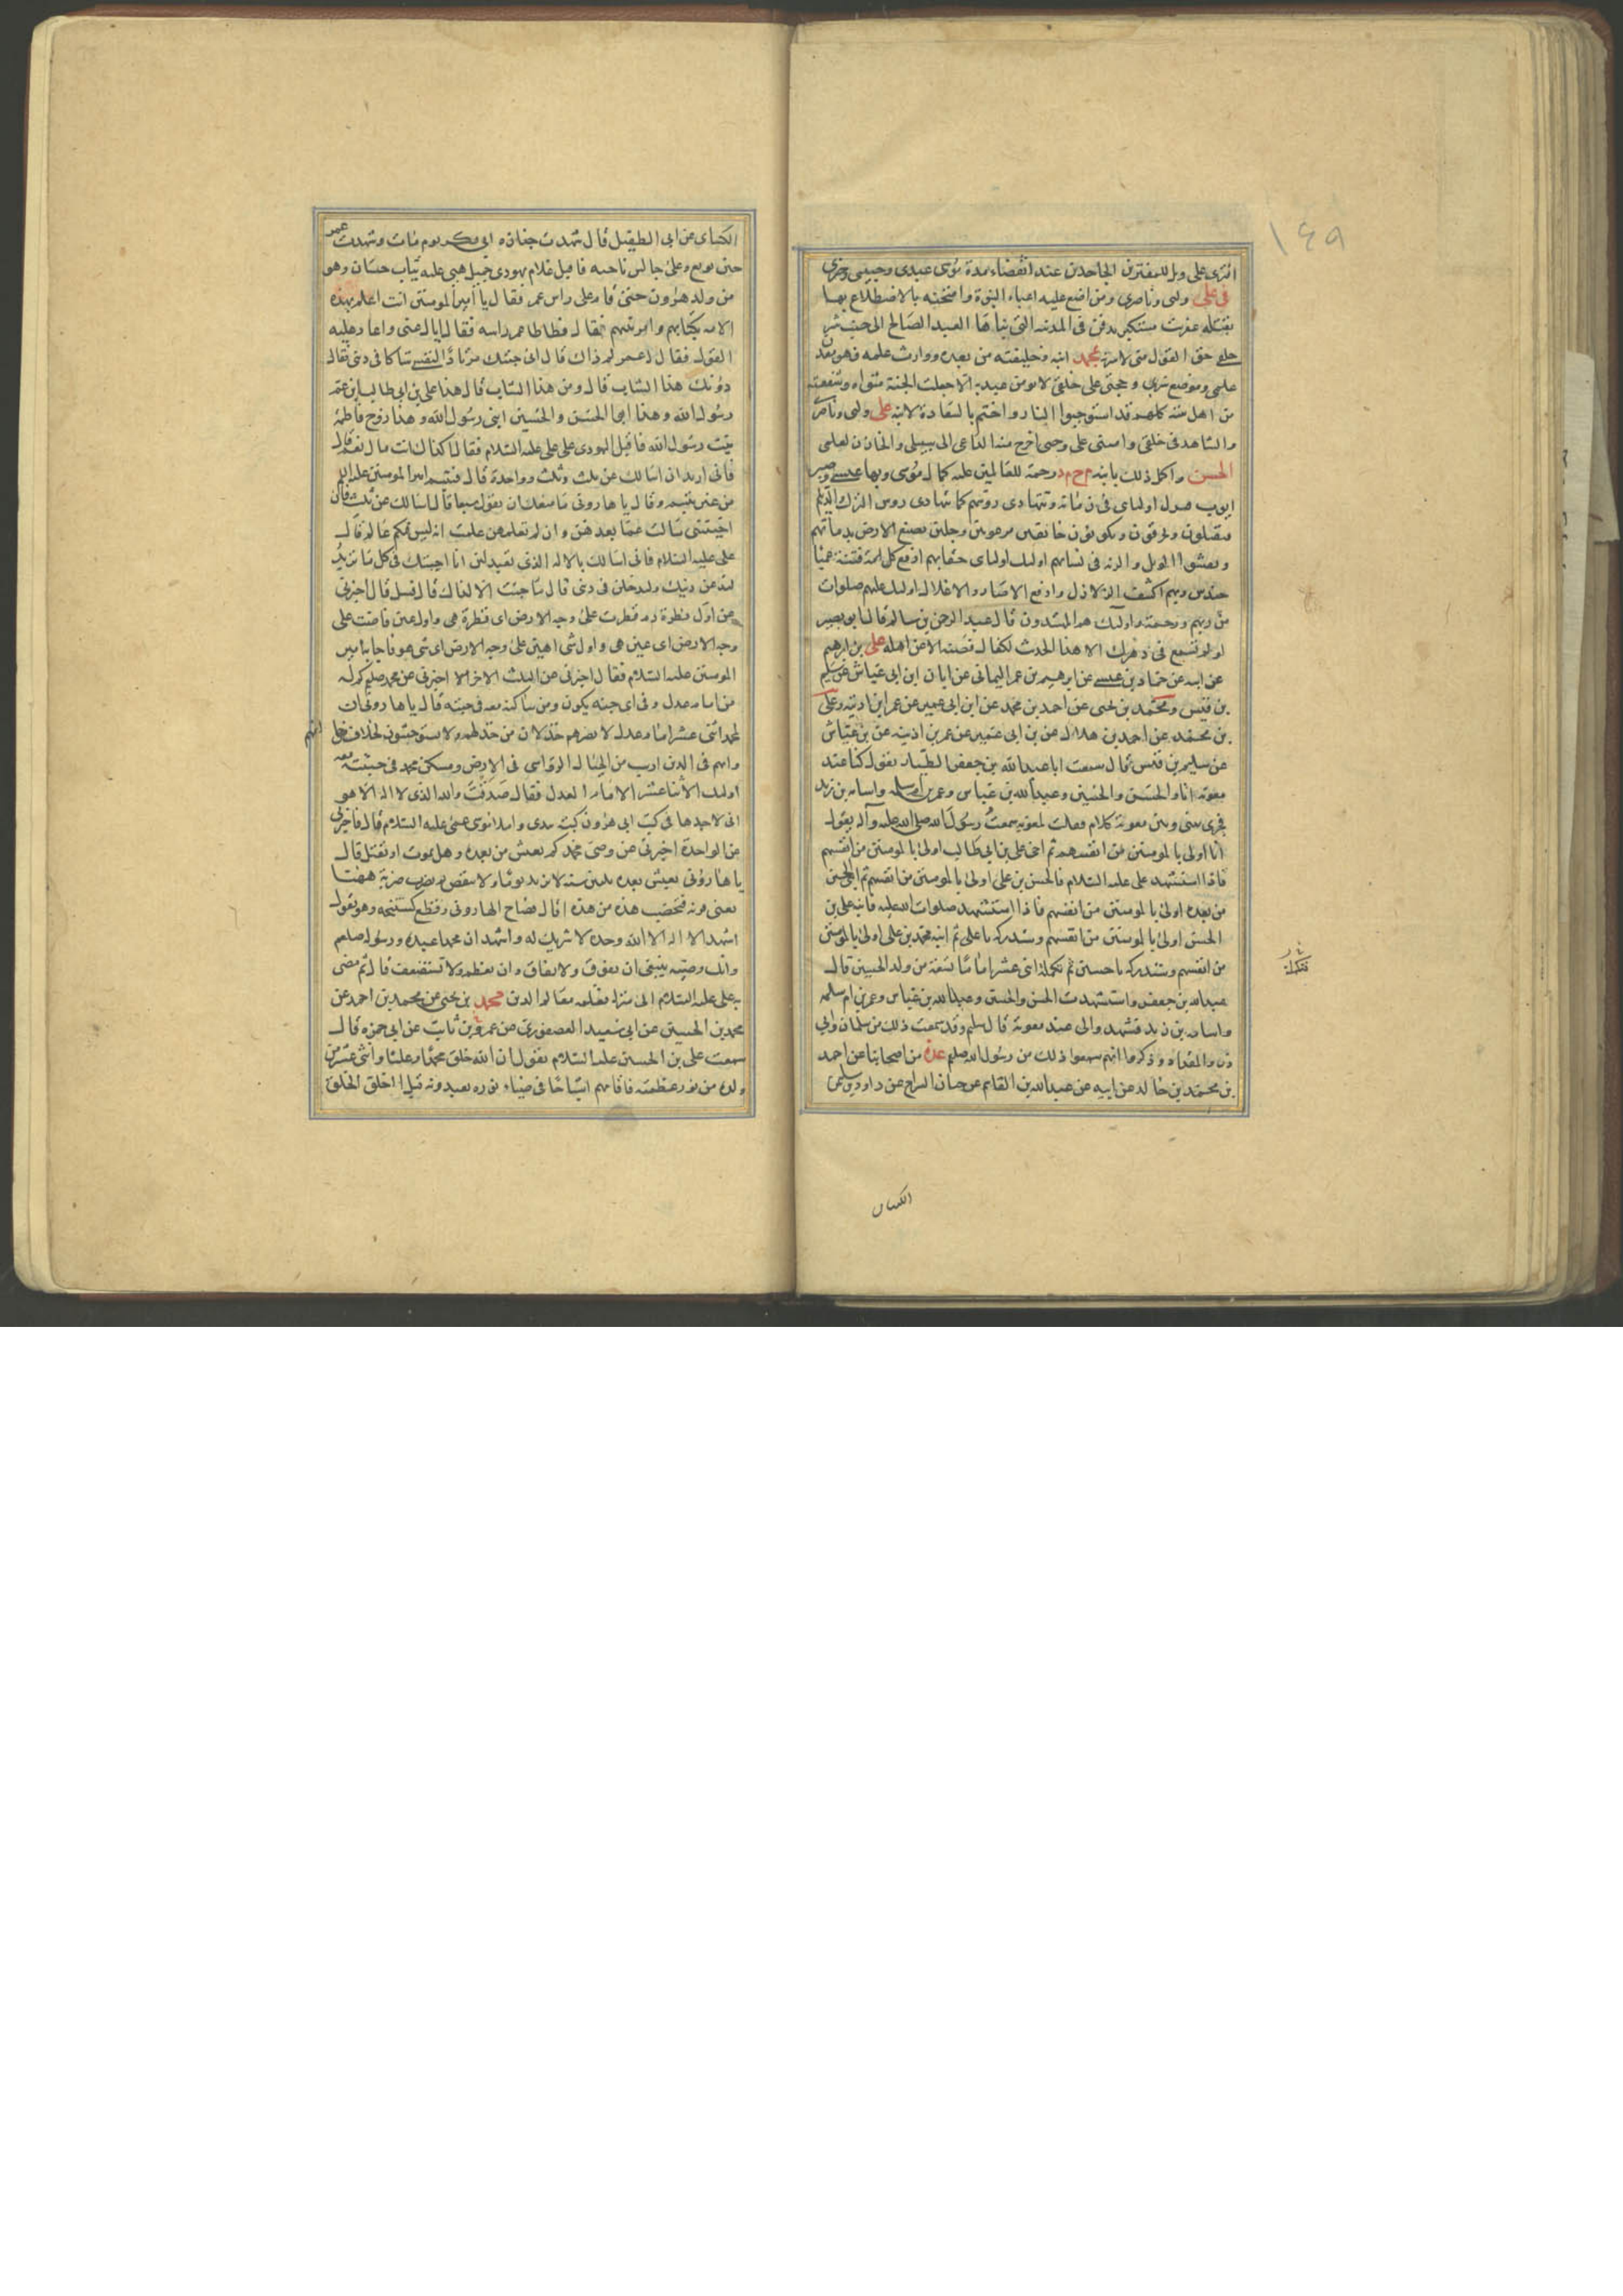 ١٤٩
افترى على ويل للمفترين الجاحدين عند انقضاء مدة موسى عبدى وحبيبى وخيرتى
فى على وليى وناصرى ومن اضع عليه اعباء النبوة وامتحنه بالاضطلاع بها
يقتله عفريت مستكبر يدفن فى المدينة التى بناها العبد الصالح الى جنب شر
خلقى حق القول منى لاسرنه بمحمد ابنه وخليفته من بعده ووارث علمه فهو معدن
علمى وموضع سرى وحجتى على خلقى لا يومن عبد به الا جعلت الجنة مثواه وشفعته
من اهل بيته كلهم قد استوجبوا النار واختم بالسعادة لابنه على وليى وناصرى
والشاهد فى خلقى وامينى على وحيى اخرج منه الداعى الى سبيلى والخازن لعلمى
الحسن واكمل ذلك بابنه م ح م د رحمة للعالمين عليه كمال موسى وبهاء عيسى وصبر
ايوب فيذل اولياى فى زمانه وتتهادى روسهم كما تتهادى روس الترك والديلم
فيقتلون ويحرقون ويكونون خائفين مرعوبين وجلين تصبغ الارض بدمائهم
ويفشوا الويل والرنة فى نسائهم اوليك اولياى حقا بهم ادفع كل فتنة عمياء
حندس وبهم اكشف الزلازل وادفع الاصار والاغلال اوليك عليهم صلوات
من ربهم ورحمة واوليك هم المهتدون قال عبد الرحمن بن سالم قال ابو بصير
لو لم تسمع فى دهرك الا هذا الحديث لكفاك فصنه الا عن اهله على بن ابرهيم
عن ابيه عن حماد بن عيسى عن ابرهيم بن عمر اليمانى عن ابان ابن ابى عياش عن سليم
بن قيس ومحمد بن يحيى عن احمد بن محمد عن ابن ابى عمير عن عمر ابن اذينه وعلى
بن محمد عن احمد بن هلال عن بن ابى عمير عن عمر بن اذينه عن بن عياش
عن سليم بن قيس قال سمعت ابا عبد الله بن جعفر الطيار يقول كنا عند
معوية انا والحسن والحسين وعبد الله بن عباس وعمر بن ام سلمه واسامه بن زيد
فجرى بينى وبين معوية كلام فقلت لمعوية سمعت رسول الله صلى الله عليه وآله يقول
انا اولى بالمومنين من انفسهم ثم اخى على بن ابى طالب اولى بالمومنين من انفسهم
فاذا استشهد على عليه السلام فالحسن بن على اولى بالمومنين من انفسهم ثم ابنى الحسين
من بعده اولى بالمومنين من انفسهم فاذا استشهد صلوات الله عليه فابنه على بن
الحسين اولى بالمومنين من انفسهم وستدركه يا على ثم ابنه محمد بن على اولى بالمومنين
من انفسهم وستدركه يا حسين ثم تكمله اثنى عشر اماما تسعة من ولد الحسين قال
عبد الله بن جعفر واستشهدت الحسن والحسين وعبد الله بن عباس وعمر بن ام سلمه
واسامه بن زيد فشهدوا لى عند معوية قال سليم وقد سمعت ذلك من سلمان وابى
ذر والمقداد وذكروا انهم سمعوا ذلك من رسول الله صلعم عدة من اصحابنا عن احمد
بن محمد بن خالد عن ابيه عن عبد الله بن القاسم عن حنان السراج عن داود بن سليمن
الكساى
الكساى عن ابى الطفيل قال شهدت جنازه ابى بكر يوم مات وشهدت عمر
حين بويع وعلى جالس ناحيه فاقبل غلام يهودى جميل بهى عليه ثياب حسان وهو
من ولد هرون حتى قام على راس عمر فقال يا امير المومنين انت اعلم بهذه
الامه بكتابهم وامر نبيهم قال فطاطا عمر راسه فقال اياك اعنى واعاد عليه
القول فقال له عمر لم ذاك قال انى جئتك مرتادا لنفسى شاكا فى دينى فقال
دونك هذا الشاب قال ومن هذا الشاب قال هذا على بن ابى طالب ابن عم
رسول الله وهذا ابو الحسن والحسين ابنى رسول الله وهذا زوج فاطمه
بنت رسول الله فاقبل اليهودى على على عليه السلام فقال اكذاك انت قال نعم قال
فانى اريد ان اسالك عن ثلث وثلث وواحدة قال فتبسم امير المومنين عليه السلم
من غير تبسم وقال يا هارونى ما منعك ان تقول سبعا قال اسالك عن ثلث فان
اجبتنى سالت عما بعدهن وان لم تعلمهن علمت انه ليس فيكم عالم قال
على عليه السلام فانى اسالك بالاله الذى تعبد لئن انا اجبتك فى كل ما تريد
لتدعن دينك ولتدخلن فى دينى قال ما جئت الا لذاك قال فسل قال اخبرنى
عن اول قطرة دم قطرت على وجه الارض اى قطرة هى واول عين فاضت على
وجه الارض اى عين هى واول شى اهتز على وجه الارض اى شى هو فاجابه امير
المومنين عليه السلام فقال اخبرنى عن الثلث الاخر اخبرنى عن محمد صلعم كم له
من امام عدل وفى اى جنه يكون ومن ساكنه معه فى جنته قال يا هارونى ان
لمحمد اثنى عشر امام عدل لا يضرهم خذلان من خذلهم ولا يستوحشون بخلاف من خالفهم
وانهم فى الدين ارسب من الجبال الرواسى فى الارض ومسكن محمد فى جنته معه
اوليك الاثنا عشر الامام العدل فقال صدقت والله الذى لا اله الا هو
انى لاجدها فى كتب ابى هرون كتبه بيده واملا موسى عمى عليه السلام قال فاخبرنى
عن الواحدة اخبرنى عن وصى محمد كم يعيش من بعده وهل يموت او يقتل قال
يا هارونى يعيش بعده ثلثين سنه لا يزيد يوما ولا ينقص ثم يضرب ضربة ههنا
يعنى قرنه فتخضب هذه من هذه قال فصاح الهارونى وقطع كستيجه وهو يقول
اشهد الا اله الا الله وحده لا شريك له واشهد ان محمدا عبده ورسوله صلعم
وانك وصيه ينبغى ان تفوق ولا تفاق وان تعظم ولا تستضعف قال ثم مضى
به على عليه السلام الى منزله فعلمه معالم الدين محمد بن يحيى عن محمد بن احمد عن
محمد بن الحسين عن ابى سعيد العصفورى عن عمرو بن ثابت عن ابى حمزه قال
سمعت على بن الحسين عليه السلام يقول ان الله خلق محمدا وعليا واثنى عشر من
ولده من نور عظمته فاقامهم اشباحا فى ضياء نوره يعبدونه قبل اخلق الخلق